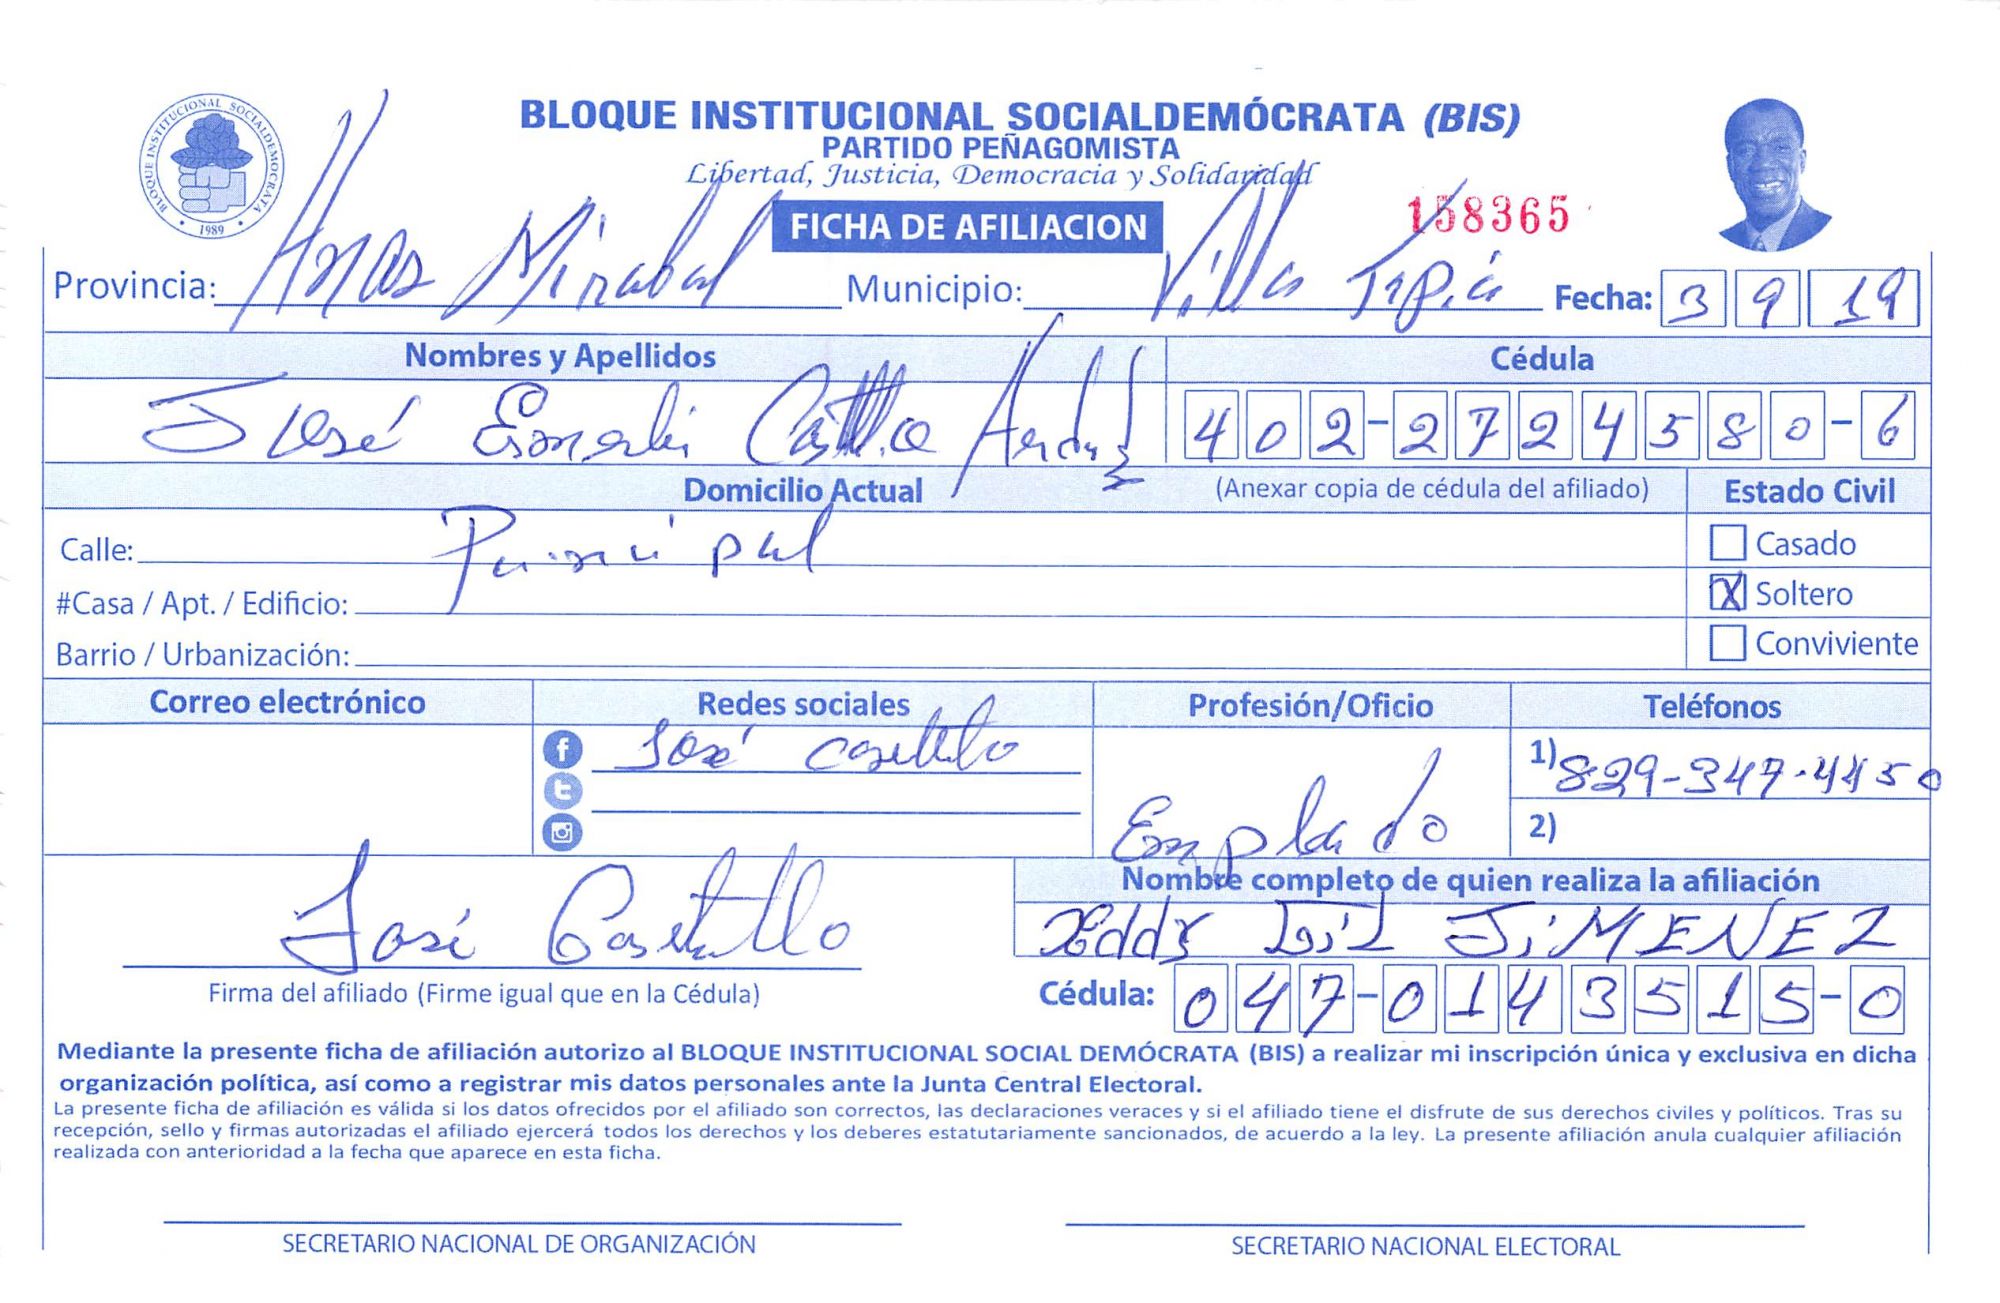 BLOQUE INSTITUCIONAL SOCIALDEMOCRATA
1989
BLOQUE INSTITUCIONAL SOCIALDEMÓCRATA (BIS)
PARTIDO PEÑAGOMISTA
Libertad, Justicia, Democracia y Solidaridad
FICHA DE AFILIACION
158365
Provincia: Hnas Mirabal Municipio: Villa Tapia Fecha: 3 9 19
Nombres y Apellidos Cédula
José Esmerlin Castillo 402-2724580-6
Domicilio Actual (Anexar copia de cédula del afiliado) Estado Civil
Calle: Principal Casado
#Casa / Apt. / Edificio: X Soltero
Barrio / Urbanización: Conviviente
Correo electrónico Redes sociales Profesión/Oficio Teléfonos
José Castillo Emplado 1) 829-347-4450
2)
Nombre completo de quien realiza la afiliación
José Castillo Eddy Gil JiMENEZ
Firma del afiliado (Firme igual que en la Cédula) Cédula: 047-0143515-0
Mediante la presente ficha de afiliación autorizo al BLOQUE INSTITUCIONAL SOCIAL DEMÓCRATA (BIS) a realizar mi inscripción única y exclusiva en dicha
organización política, así como a registrar mis datos personales ante la Junta Central Electoral.
La presente ficha de afiliación es válida si los datos ofrecidos por el afiliado son correctos, las declaraciones veraces y si el afiliado tiene el disfrute de sus derechos civiles y políticos. Tras su
recepción, sello y firmas autorizadas el afiliado ejercerá todos los derechos y los deberes estatutariamente sancionados, de acuerdo a la ley. La presente afiliación anula cualquier afiliación
realizada con anterioridad a la fecha que aparece en esta ficha.
SECRETARIO NACIONAL DE ORGANIZACIÓN SECRETARIO NACIONAL ELECTORAL